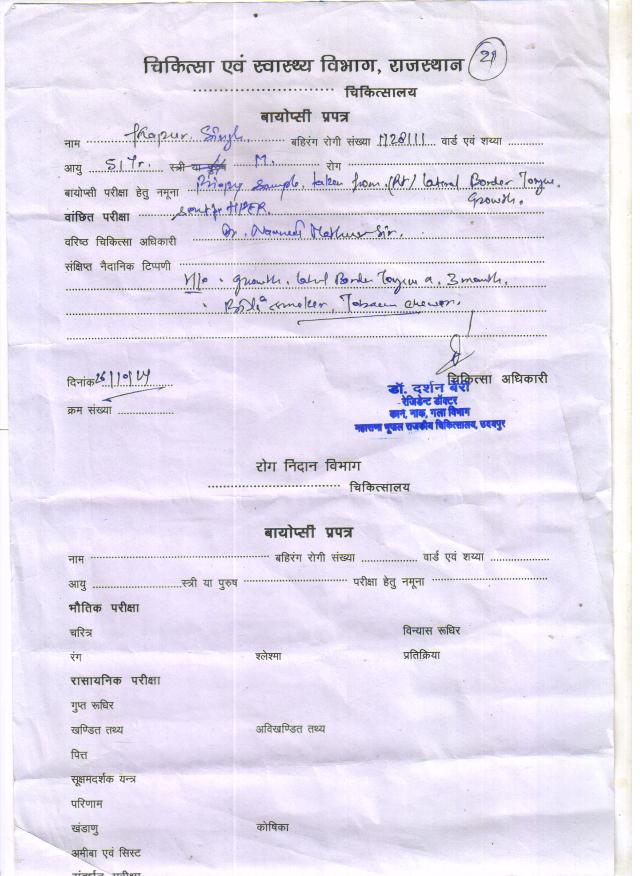 चिकित्सा एवं स्वास्थ्य विभाग, राजस्थान
चिकित्सालय
बायोप्सी प्रपत्र
नाम Singh. बहिरंग रोगी संख्या M28111 वार्ड एवं शय्या
आयु 51 Yr. स्त्री या पुरुष M. रोग
बायोप्सी परीक्षा हेतु नमूना Biopsy Sample taken from (Rt) lateral Border Tongue Growth.
वांछित परीक्षा Sent for HPER.
वरिष्ठ चिकित्सा अधिकारी Dr. Navneet Mathur Sir.
संक्षिप्त नैदानिक टिप्पणी
Growth, Border Tongue 3 month.
smoker, Tobacco chewer.
चिकित्सा अधिकारी
दिनांक 26/10/24
डॉ. दर्शन
रेजिडेन्ट डॉक्टर
क्रम संख्या
कान, नाक, गला विभाग
महाराणा भूपाल राजकीय चिकित्सालय, उदयपुर
रोग निदान विभाग
चिकित्सालय
बायोप्सी प्रपत्र
नाम बहिरंग रोगी संख्या वार्ड एवं शय्या
आयु स्त्री या पुरुष परीक्षा हेतु नमूना
भौतिक परीक्षा
चरित्र विन्यास रूधिर
रंग श्लेश्मा प्रतिक्रिया
रासायनिक परीक्षा
गुप्त रूधिर
खण्डित तथ्य अविखण्डित तथ्य
पित्त
सूक्षमदर्शक यन्त्र
परिणाम
खंडाणु कोषिका
अमीबा एवं सिस्ट